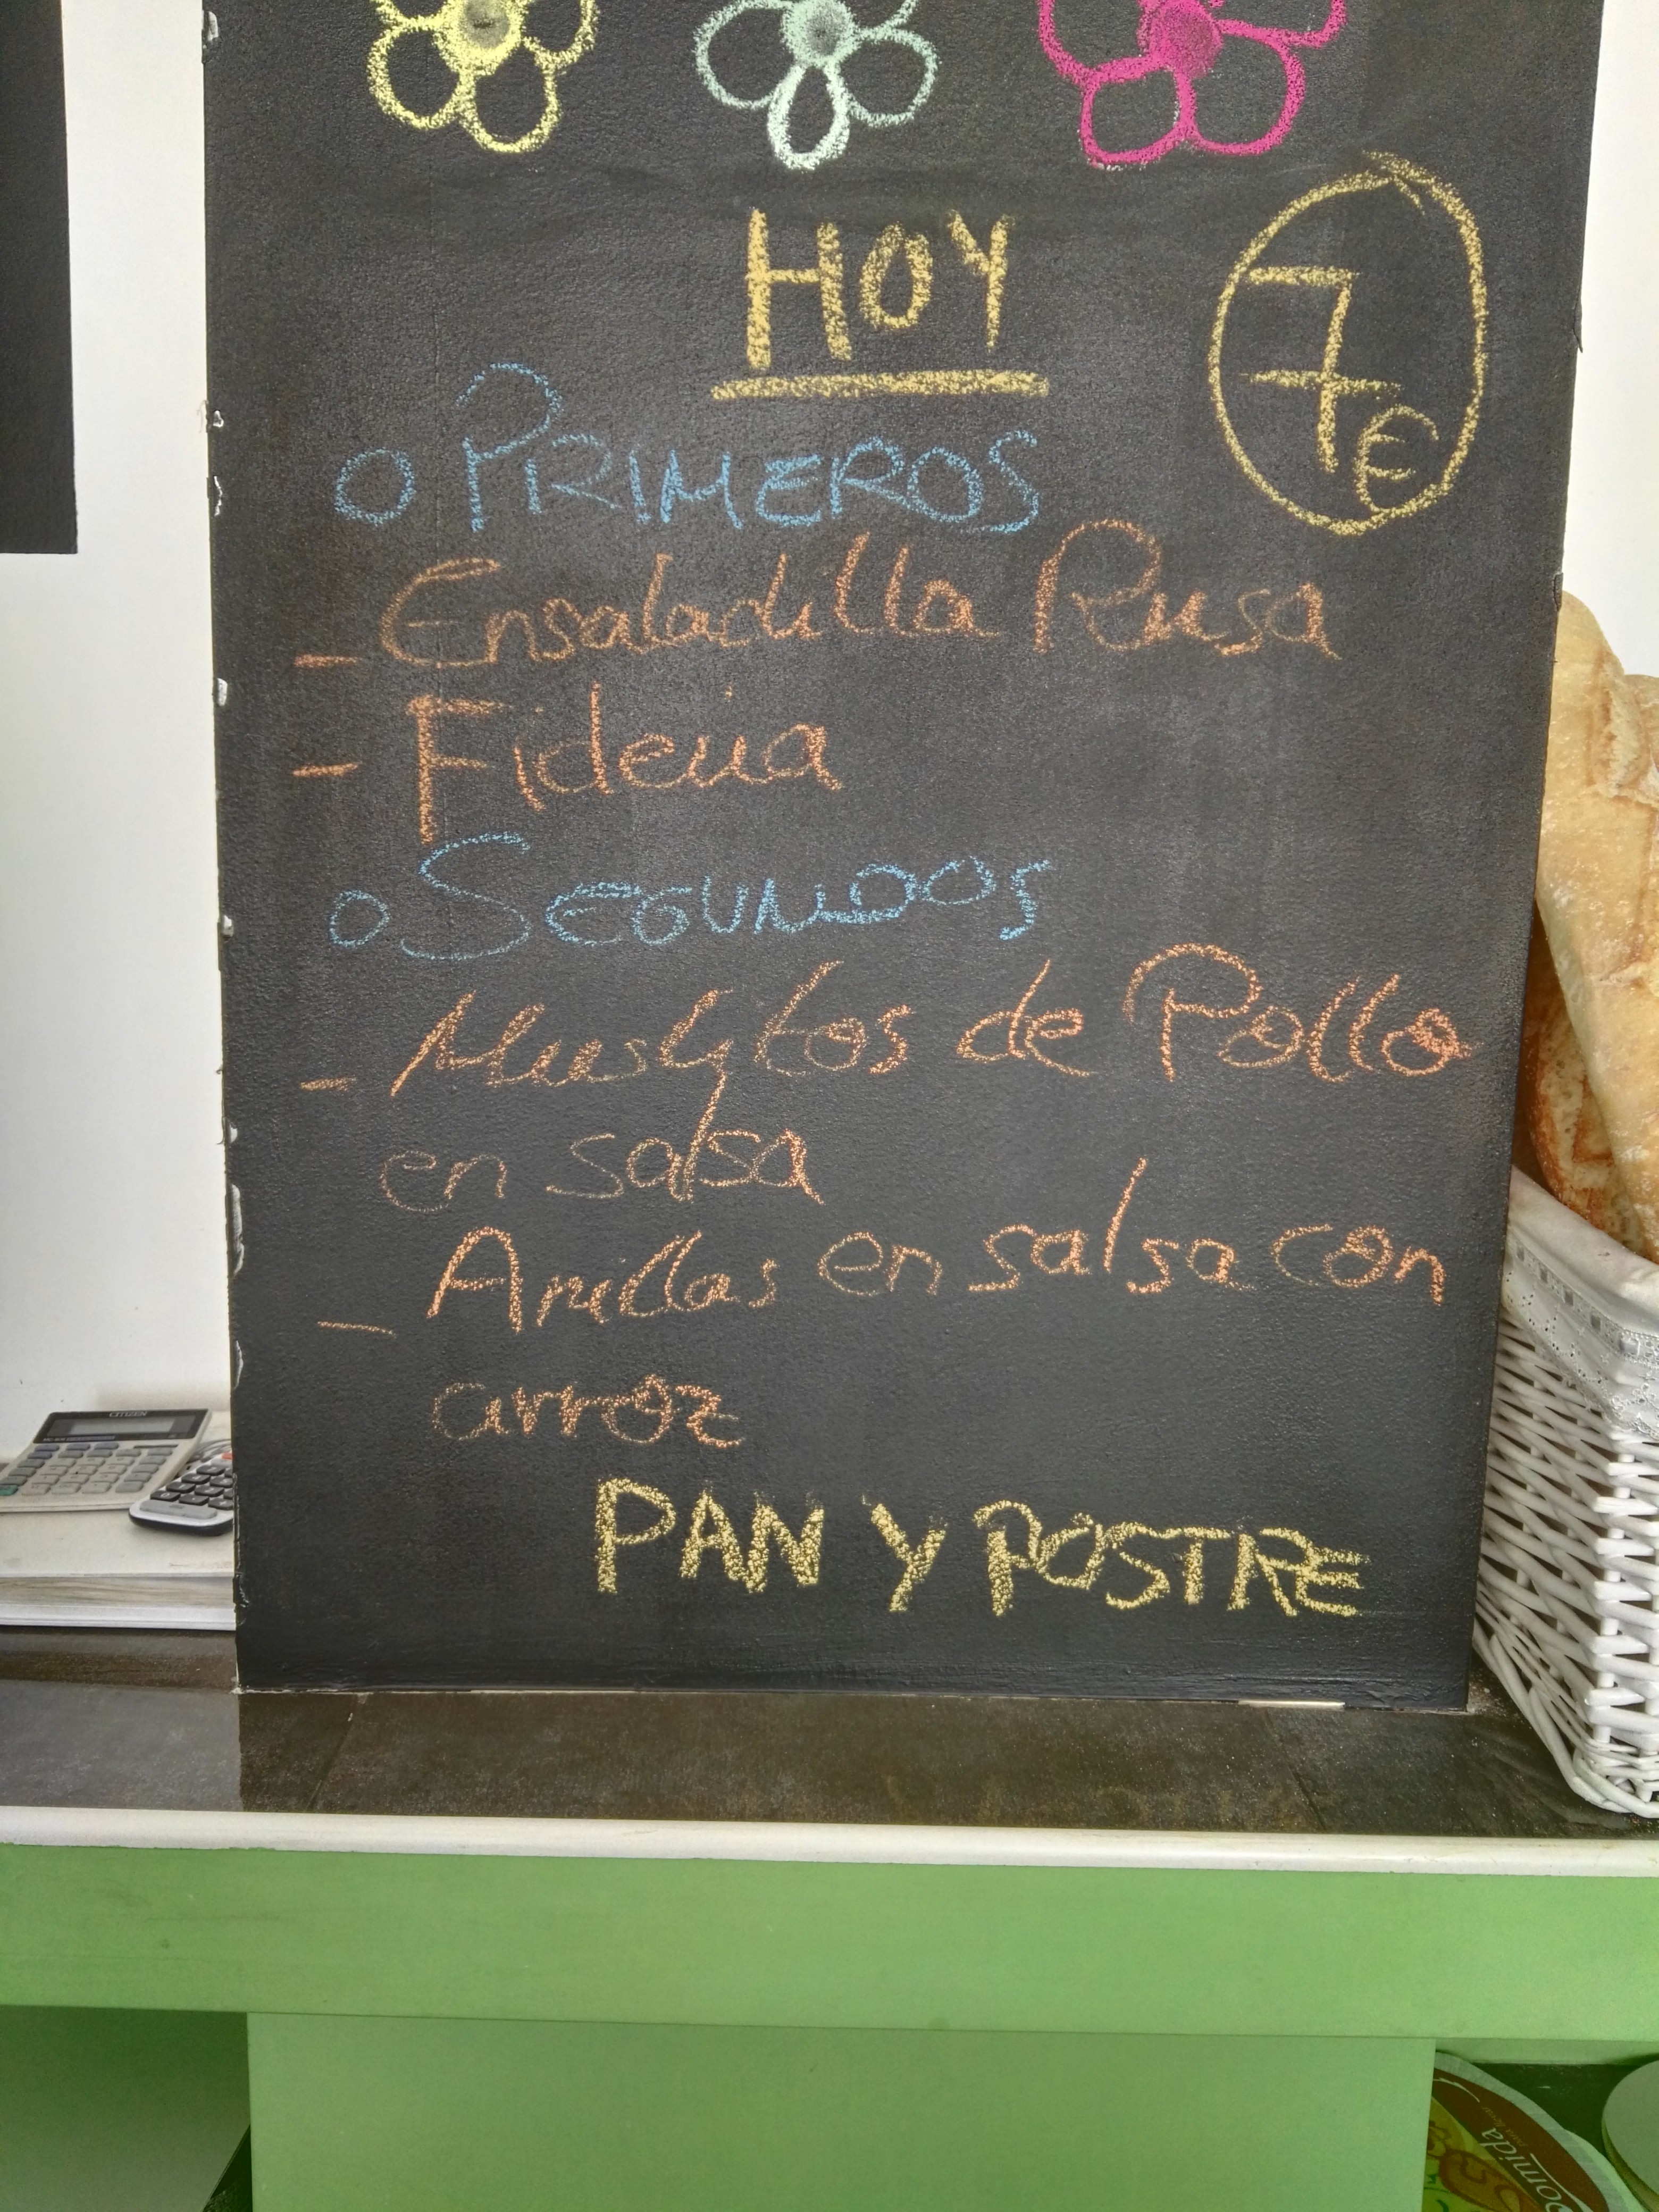 HOY
7€
o PRIMEROS
- Ensaladilla Rusa
- Fideua
o SEGUNDOS
- Muslitos de Pollo
en salsa
- Anillas en salsa con
arroz
PAN Y POSTRE
CITIZEN
Comida